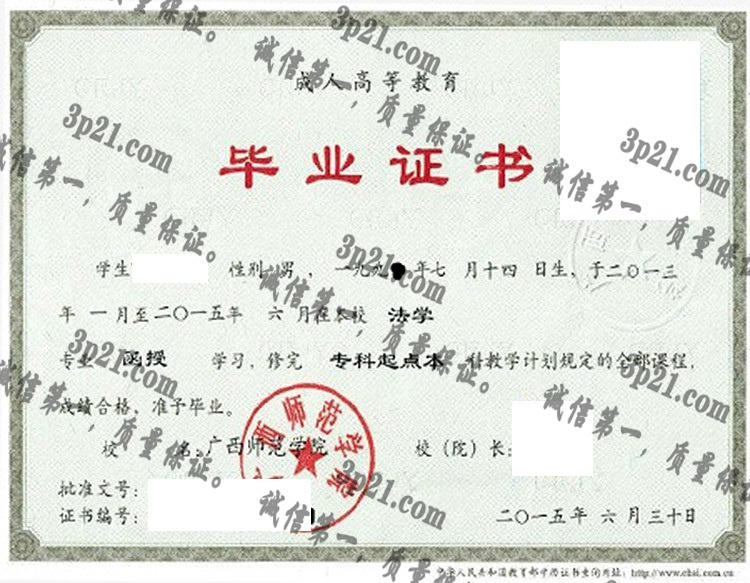 成人高等教育
毕业证书
学生 性别 男 ，一九九 年七 月十四 日生，于二〇一三
年 一 月至二〇一五年 六 月在本校 法学
专业 函授 学习，修完 专科起点本 科教学计划规定的全部课程，
成绩合格，准予毕业。
校 名：广西师范学院 校（院）长：
批准文号：
证书编号：
二〇一五年 六 月三十日
中华人民共和国教育部学历证书查询网址：http://www.chsi.com.cn
西师范学院
3p21.com
诚信第一，质量保证。
3p21.com
诚信第一，质量保证。
3p21.com
诚信第一，质量保证。
3p21.com
诚信第一，质量保证。
3p21.com
诚信第一，质量保证。
3p21.com
诚信第一，质量保证。
3p21.com